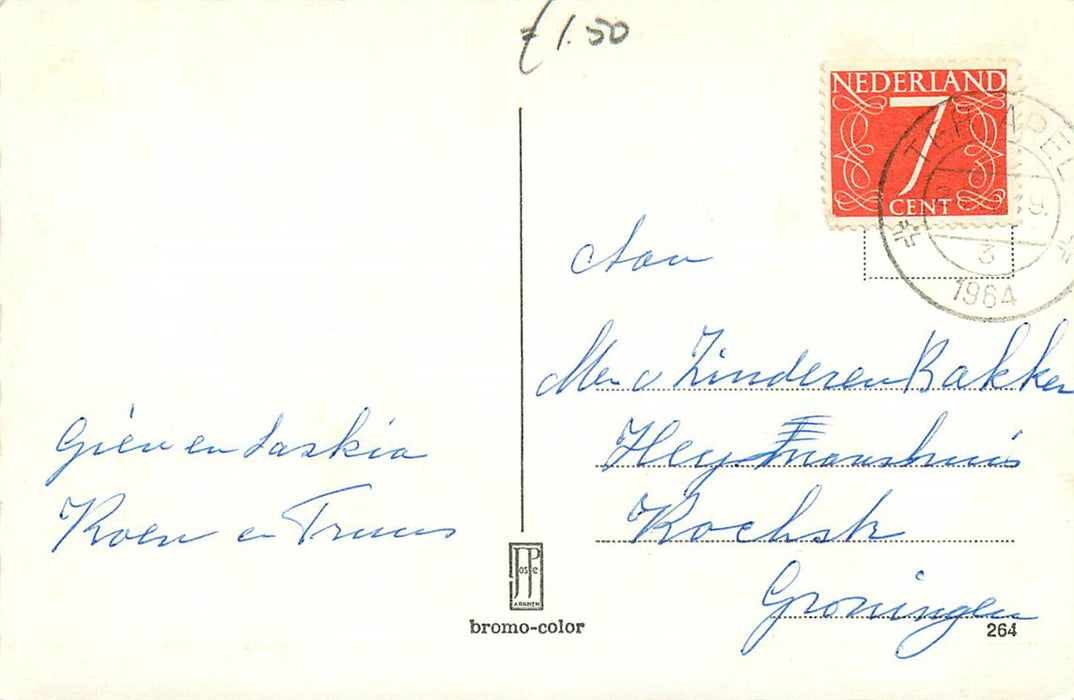 ƒ 1.50
NEDERLAND
7
CENT
TER APEL
3
1964
Aan
Mev v Zinderen Bakker
Heymanshuis
Kochstr
Groningen
Giev en Saskia
Koen en Truus
JosPe
ARNHEM
bromo-color
264